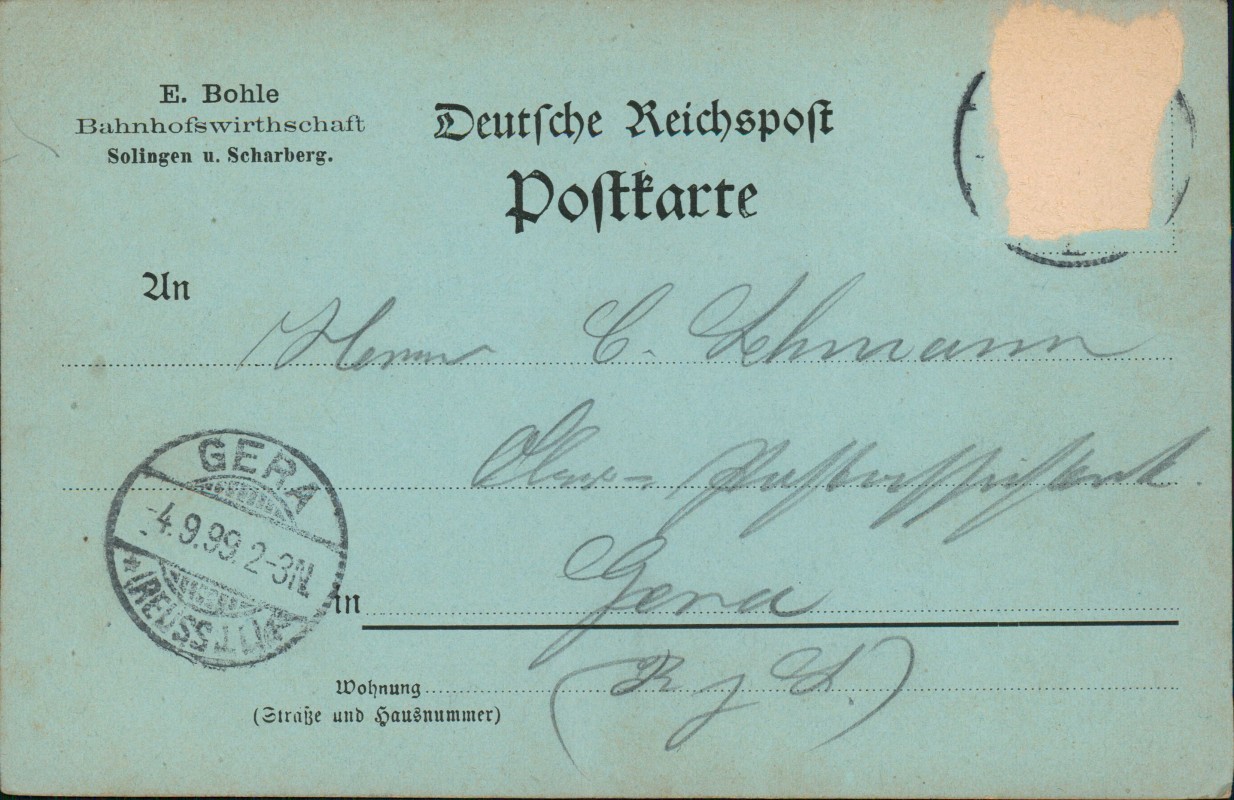 E. Bohle
Bahnhofswirthschaft
Solingen u. Scharberg.
Deutsche Reichspost
Postkarte
An
Herrn C. Lehmann
Ober-Postassistent.
GERA
-4.9.99. 2-3N.
*(REUSS)
in Gera
(R j L.)
Wohnung
(Straße und Hausnummer)